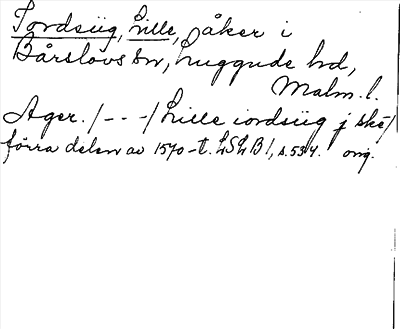 Iordsüg, Lille, åker i
Bårslövs sn, Luggude hd,
Malm. l.
Ager. /- - -/ Lille iordsüg j skë/
förra delen av 1570-t. LSLB 1, s. 534. orig.